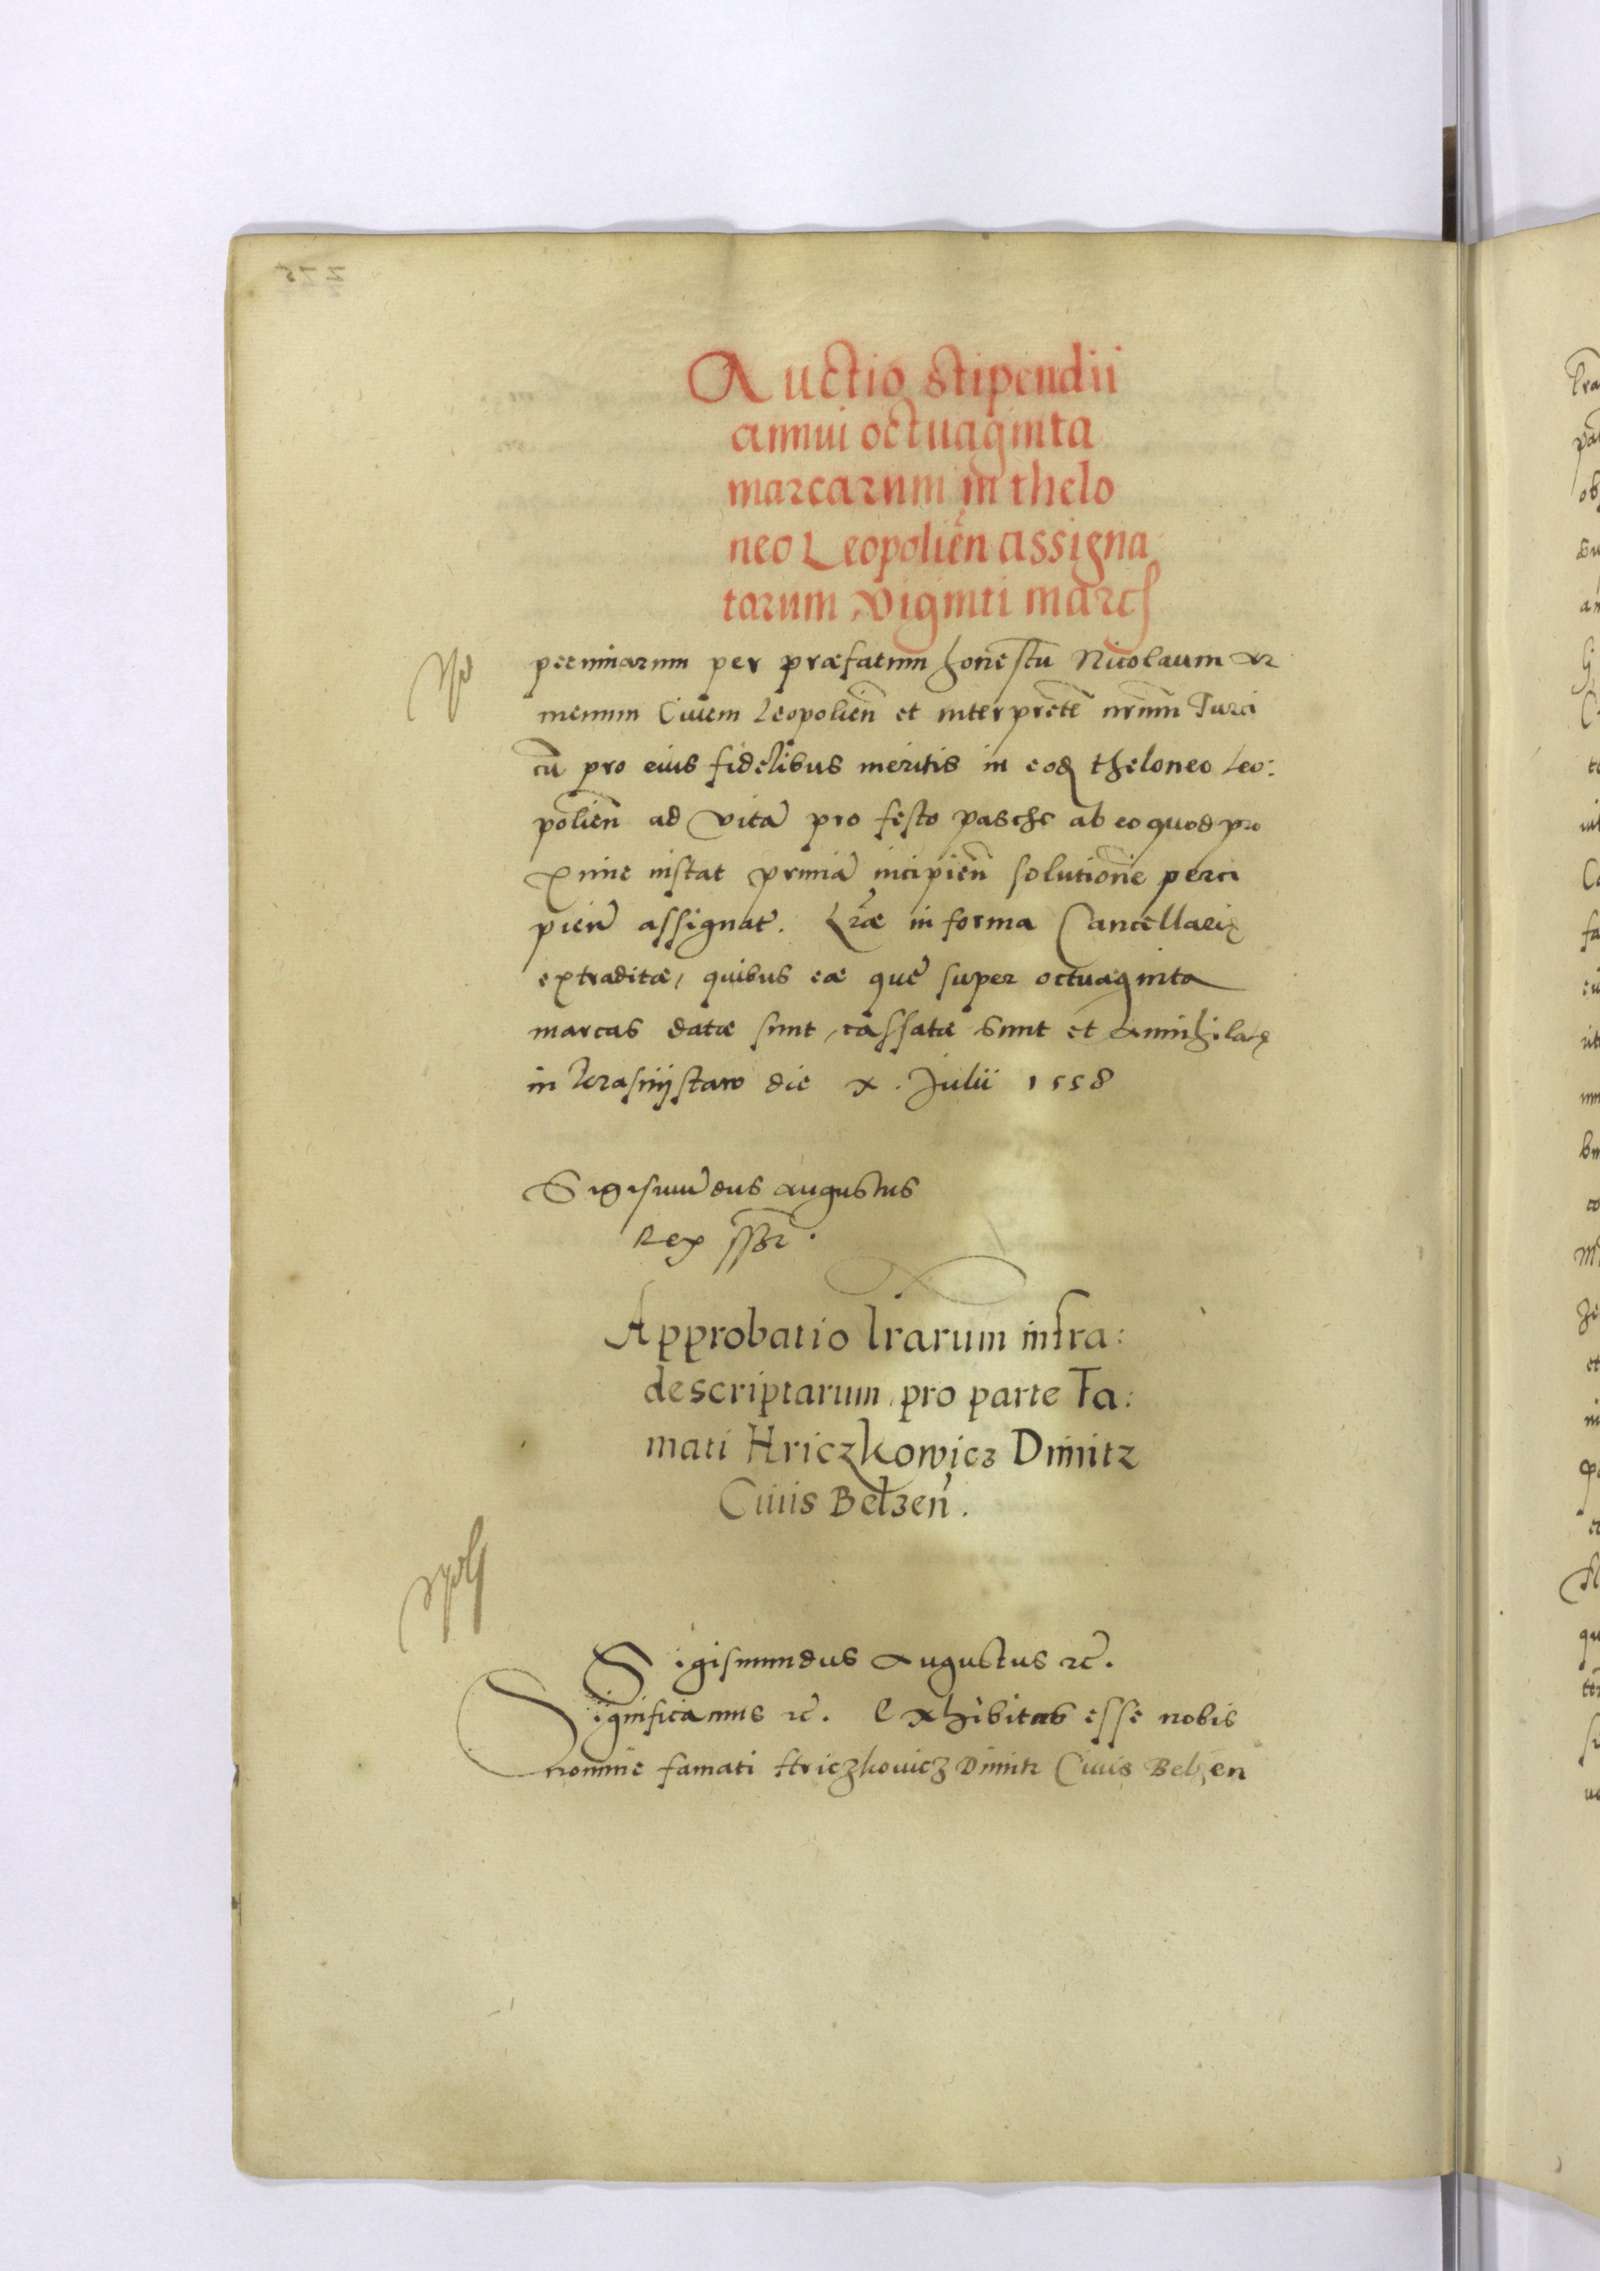 Auctio stipendii
annui octuaginta
marcarum in thelo
neo Leopolien̄ assigna
tarum viginti marc
pecuniarum per præfatum honestū Nicolaum Ar
menum Ciuem Leopolien̄ et interpretē nrūm Turci
cū pro eius fidelibus meritis in eod theloneo Leo:
polien̄ ad vitā pro festo pasche ab eo quod pro
xime instat primā incipien̄ solutionē perci
pien̄ assignat. Lræ in forma Cancellarię
extraditæ, quibus eæ que super octuaginta
marcas datæ sunt, cassatæ sunt et annihilatę
in Krasnijstaw die x. Julii 1558
Sigismūdus augustus
Rex ssr.
Approbatio lrarum infra:
descriptarum, pro parte Fa:
mati Hriczkowicz Dimitr
Ciuis Belzen̄.
Sigismundus Augustus rc.
Significamus rc. Exhibitas esse nobis
nomine famati Hriczkouicz Dimitr Ciuis Belzen